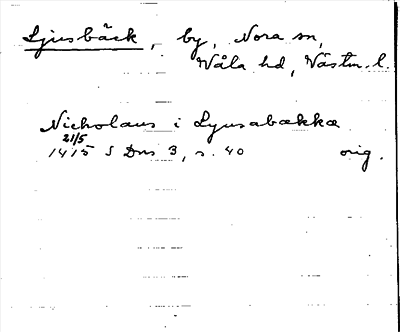 Ljusbäck, by, Nora sn,
Våla hd, Västm. l.
Nicholaus i Lyusabækkæ
21/5
1415 S Dns 3, s. 40 orig.